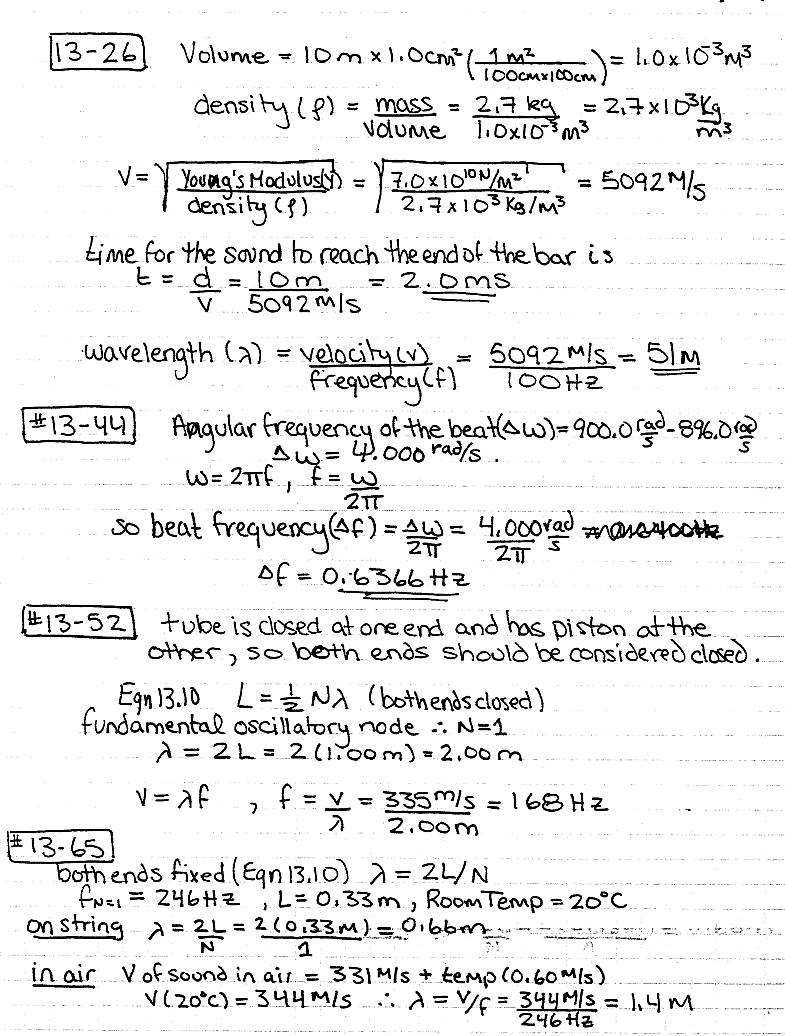 13-26 Volume = 10m × 1.0cm² (1m² / 100cm×100cm) = 1.0×10⁻³M³
density (ρ) = mass / volume = 2.7 kg / 1.0×10⁻³m³ = 2.7×10³ Kg/m³
V = √(Young's Modulus(Y) / density(ρ)) = √(7.0×10¹⁰N/M² / 2.7×10³Kg/M³) = 5092 M/s
time for the sound to reach the end of the bar is
t = d/v = 10m / 5092M/s = 2.0ms
wavelength (λ) = velocity(v) / frequency(f) = 5092 M/s / 100Hz = 51M
#13-44 Angular frequency of the beat(Δω) = 900.0 rad/s - 896.0 rad/s
Δω = 4.000 rad/s.
ω = 2πf, f = ω/2π
so beat frequency(Δf) = Δω/2π = 4.000 rad/s / 2π
Δf = 0.6366 Hz
#13-52 tube is closed at one end and has piston at the
other, so both ends should be considered closed.
Eqn 13.10 L = ½ Nλ (both ends closed)
fundamental oscillatory node ∴ N=1
λ = 2L = 2(1.00m) = 2.00m
V = λf, f = v/λ = 335 m/s / 2.00m = 168 Hz
#13-65
both ends fixed (Eqn 13.10) λ = 2L/N
f_N=1 = 246Hz, L = 0.33m, Room Temp = 20°C
on string λ = 2L/N = 2(0.33M)/1 = 0.66m
in air V of sound in air = 331M/s + temp(0.60M/s)
V(20°C) = 344M/s ∴ λ = V/f = 344M/s / 246Hz = 1.4M